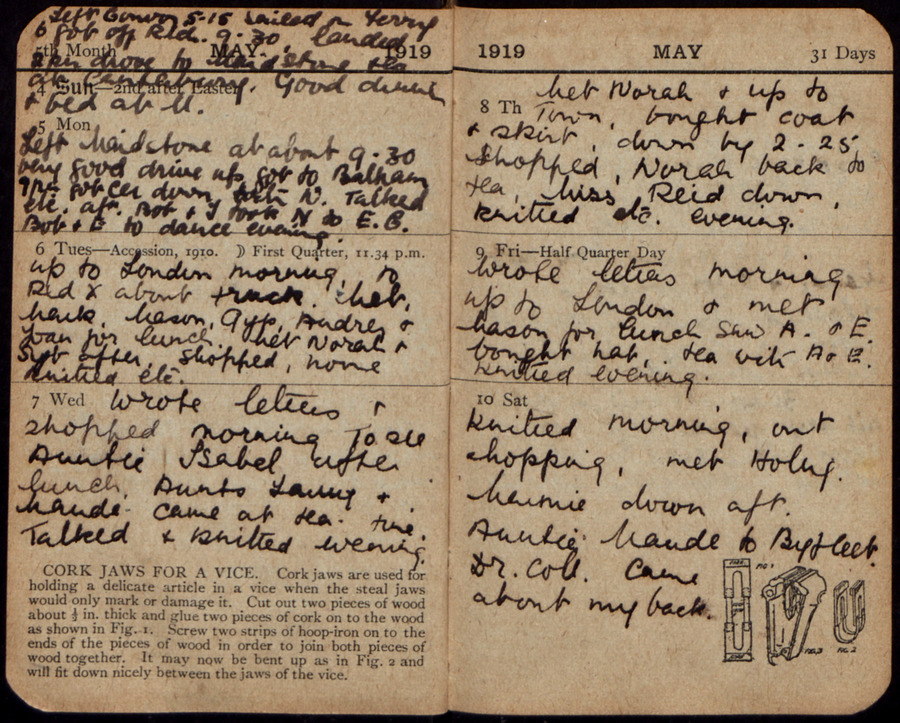 Left Convoy 5-15 sailed on ferry
6 got off Rld. 9.30, landed
5th Month MAY. 1919
drove to Maidstone tea
4 Sun—2nd after Easter
at Canterbury. Good dinner
+ bed at M.
5 Mon
Left Maidstone at about 9.30
very good drive up, got to Balham
got car down with N. Talked
etc. aft. Bob + I took N to E.C.
Bob + E to dance evening.
6 Tues—Accession, 1910. ☽ First Quarter, 11.34 p.m.
up to London morning, to
Rld X about truck. Met,
Mark, Mason, Gyp, Audrey +
Joan for lunch. Met Norah +
after, shopped, home
Knitted etc.
7 Wed Wrote letters +
shopped morning To see
Auntie Isabel after
lunch. Aunts Fanny +
Maude came at tea time.
Talked + knitted evening.
CORK JAWS FOR A VICE. Cork jaws are used for
holding a delicate article in a vice when the steal jaws
would only mark or damage it. Cut out two pieces of wood
about ½ in. thick and glue two pieces of cork on to the wood
as shown in Fig. 1. Screw two strips of hoop-iron on to the
ends of the pieces of wood in order to join both pieces of
wood together. It may now be bent up as in Fig. 2 and
will fit down nicely between the jaws of the vice.
1919 MAY 31 Days
Met Norah + up to
8 Th Town, bought coat
+ skirt, down by 2-25,
Shopped, Norah back to
tea, Miss Reid down,
knitted etc. evening.
9 Fri—Half Quarter Day
Wrote letters morning
up to London + met
Mason for lunch Saw A. + E.
bought hat, tea with A + E.
Knitted evening.
10 Sat
Knitted morning, out
shopping, met Holny.
Mummie down aft.
Auntie Maude to Byfleet.
Dr. Coll. came
about my back.
FIG 1
FIG. 3
FIG. 2